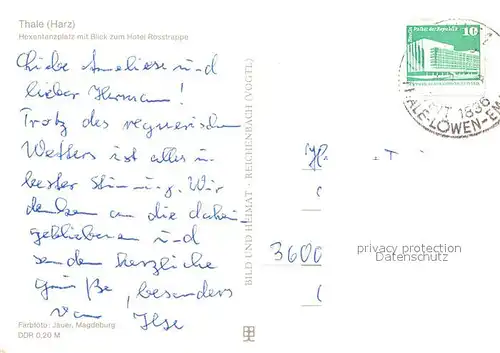 Thale (Harz)
Hexentanzplatz mit Blick zum Hotel Rosstrappe
Liebe Anneliese und
lieber Herman!
Trotz des regnerischen
Wetters ist alles in
bester Stimmung. Wir
denken an die daheim-
gebliebenen und
senden herzliche
Grüße, besonders
von Ilse
Farbfoto: Jäuer, Magdeburg
DDR 0,20 M
BILD UND HEIMAT · REICHENBACH (VOGEL)
Palast der Republik
10
1836
THALE-LÖWEN-
3600
privacy protection
Datenschutz